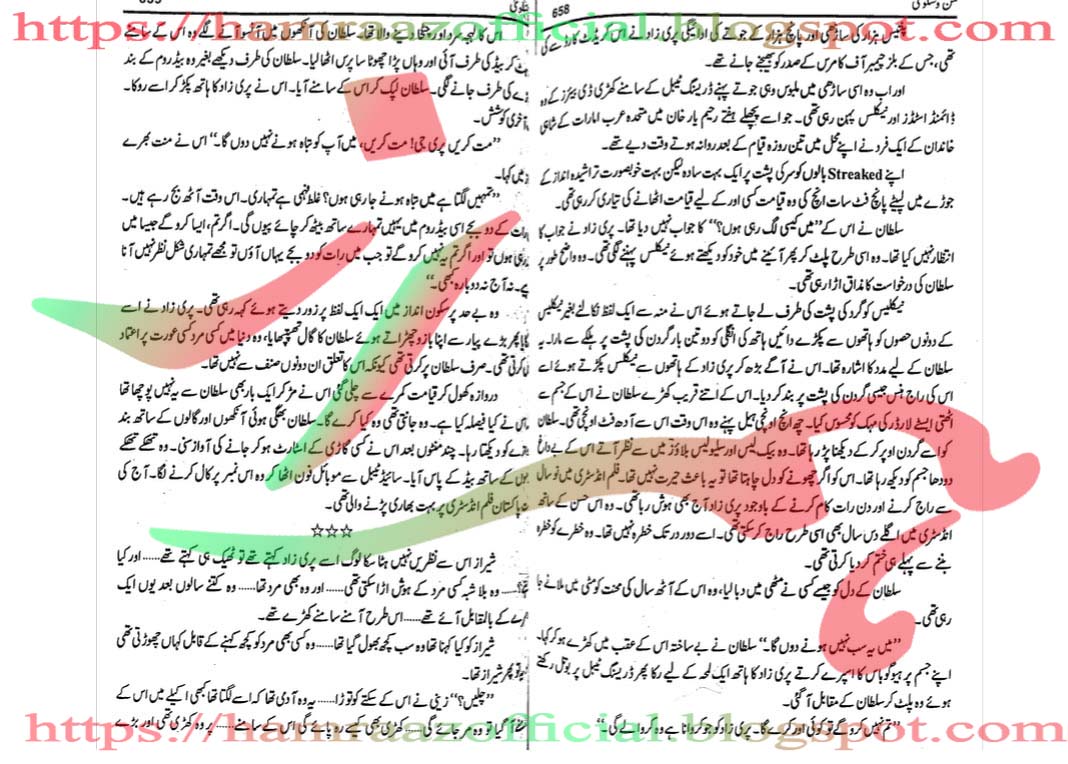 https://hamraazofficial.blogspot.com
658
پینتیس ہزار کی ساڑھی اور پانچ ہزار کے جوتے کی ادائیگی پری زاد نے اس کریڈٹ کارڈ سے کی
تھی، جس کے بلز چیمبر آف کامرس کے صدر کو بھیجے جانے تھے۔
اور اب وہ اسی ساڑھی میں ملبوس وہی جوتے پہنے ڈریسنگ ٹیبل کے سامنے کھڑی ڈی بیئرز کے وہ
ڈائمنڈ اسٹڈز اور نیکلس پہن رہی تھی۔ جو اسے پچھلے ہفتے رحیم یار خان میں متحدہ عرب امارات کے شاہی
خاندان کے ایک فرد نے اپنے محل میں تین روزہ قیام کے بعد روانہ ہوتے وقت دیے تھے۔
اپنے Streaked بالوں کو سر کی پشت پر ایک بہت سادہ لیکن بہت خوبصورت تراشیدہ انداز کے
جوڑے میں لپیٹے پانچ فٹ سات انچ کی وہ قیامت کسی اور کے لیے قیامت اٹھانے کی تیاری کر رہی تھی۔
سلطان نے اس کے ”میں کیسی لگ رہی ہوں؟“ کا جواب نہیں دیا تھا۔ پری زاد نے جواب کا
انتظار نہیں کیا تھا۔ وہ اسی طرح پلٹ کر پھر آئینے میں خود کو دیکھتے ہوئے نیکلس پہننے لگی تھی۔ وہ واضح طور پر
سلطان کی درخواست کا مذاق اڑا رہی تھی۔
نیکلیس کو گردن کی پشت کی طرف لے جاتے ہوئے اس نے منہ سے ایک لفظ نکالے بغیر نیکلیس
کے دونوں حصوں کو ہاتھوں سے پکڑے دائیں ہاتھ کی انگلی کو دو تین بار گردن کی پشت پر ہلکے سے مارا۔ یہ
سلطان کے لیے مدد کا اشارہ تھا۔ اس نے آگے بڑھ کر پری زاد کے ہاتھوں سے نیکلس پکڑتے ہوئے اسے
اس کی راج ہنس جیسی گردن کی پشت پر بند کر دیا۔ اس کے اتنے قریب کھڑے سلطان نے اس کے جسم سے
اٹھتی ایسٹے لارڈر کی مہک کو محسوس کیا۔ چھ انچ اونچی ہیل پہنے وہ اس وقت اس سے آدھ فٹ اونچی تھی۔ سلطان
کو اسے گردن اوپر کر کے دیکھنا پڑ رہا تھا۔ وہ بیک لیس اور سلیولیس بلاؤز میں سے نظر آتے اس کے بے داغ
دودھیا جسم کو دیکھ رہا تھا۔ اس کو اگر چھونے کو دل چاہتا تھا تو یہ باعث حیرت نہیں تھا۔ فلم انڈسٹری میں نو سال
سے راج کرنے اور دن رات کام کرنے کے باوجود پری زاد آج بھی ہوش رہا تھی۔ وہ اس حسن کے ساتھ
انڈسٹری میں اگلے دس سال بھی اسی طرح راج کر سکتی تھی۔ اسے دور دور تک خطرہ نہیں تھا۔ وہ خطرے کو خطرہ
بننے سے پہلے ہی ختم کر دیا کرتی تھی۔
سلطان کے دل کو جیسے کسی نے مٹھی میں دبا لیا، وہ اس کے آٹھ سال کی محنت کو مٹی میں ملانے جا
رہی تھی۔
”میں یہ سب نہیں ہونے دوں گا۔“ سلطان نے بے ساختہ اس کے عقب میں کھڑے ہو کر کہا۔
اپنے جسم پر ہیوگو باس کا اسپرے کرتے پری زاد کا ہاتھ ایک لمحہ کے لیے رکا پھر ڈریسنگ ٹیبل پر بوتل رکھتے
ہوئے وہ پلٹ کر سلطان کے مقابل آ گئی۔
”تم نہیں کرو گے تو کوئی اور کرے گا۔ پری زاد کو جو کروانا ہے وہ کروا لے گی۔“
اس کا لہجہ سرد اور چیلنج دینے والا تھا۔ سلطان کی آنکھوں میں آنسو آنے لگے وہ اس کے سامنے
ہٹ کر بیڈ کی طرف آئی اور وہاں پڑا چھوٹا سا پرس اٹھا لیا۔ سلطان کی طرف دیکھے بغیر وہ بیڈروم کے بند
کی طرف جانے لگی۔ سلطان لپک کر اس کے سامنے آیا۔ اس نے پری زاد کا ہاتھ پکڑ کر اسے روکا۔
آخری کوشش۔
”مت کریں پری جی! مت کریں، میں آپ کو تباہ ہونے نہیں دوں گا۔“ اس نے منت بھرے
میں کہا۔
”تمہیں لگتا ہے میں تباہ ہونے جا رہی ہوں؟ غلط فہمی ہے تمہاری۔ اس وقت آٹھ بج رہے ہیں۔
رات کے دو بجے اسی بیڈ روم میں یہیں تمہارے ساتھ بیٹھ کر چائے پیوں گی۔ اگر تم، ایسا کرو گے جیسا میں
رہی ہوں تو اور اگر تم یہ نہیں کرو گے تو جب میں رات کو دو بجے یہاں آؤں تو مجھے تمہاری شکل نظر نہیں آنا
۔ نہ آج نہ دوبارہ کبھی۔“
وہ بے حد پر سکون انداز میں ایک ایک لفظ پر زور دیتے ہوئے کہہ رہی تھی۔ پری زاد نے اسے
پھر بڑے پیار سے اپنا بازو چھڑاتے ہوئے سلطان کا گال تھپتھپایا، وہ دنیا میں کسی مرد کسی عورت پر اعتماد
کرتی تھی۔ صرف سلطان پر کرتی تھی کیونکہ اس کا تعلق ان دونوں صنف سے نہیں تھا۔
دروازہ کھول کر قیامت کمرے سے چلی گئی اس نے مڑ کر ایک بار بھی سلطان سے یہ نہیں پوچھا تھا
اس نے کیا فیصلہ کیا ہے۔ وہ جانتی تھی وہ کیا کرے گا۔ سلطان بھیگی ہوئی آنکھوں اور گالوں کے ساتھ بند
کو دیکھتا رہا۔ چند منٹوں بعد اس نے کسی گاڑی کے اسٹارٹ ہو کر جانے کی آواز سنی۔ وہ تھکے تھکے
کے ساتھ بیڈ کے پاس آیا۔ سائیڈ ٹیبل سے موبائل فون اٹھا کر وہ اس نمبر پر کال کرنے لگا۔ آج کی
پاکستان فلم انڈسٹری پر بہت بھاری پڑنے والی تھی۔
☆☆☆
شیراز اس سے نظریں نہیں ہٹا سکا لوگ اسے پری زاد کہتے تھے تو ٹھیک ہی کہتے تھے...... اور کیا
؟...... وہ بلاشبہ کسی مرد کے ہوش اڑا سکتی تھی...... اور وہ بھی مرد تھا...... وہ کتنے سالوں بعد یوں ایک
کے بالمقابل آئے تھے...... اس طرح آمنے سامنے کھڑے تھے۔
شیراز کو کیا کہنا تھا وہ سب کچھ بھول گیا تھا...... وہ کسی بھی مرد کو کچھ کہنے کے قابل کہاں چھوڑتی تھی
پھر شیراز تھا۔
”چلیں؟“ زینی نے اس کے سکتے کو توڑا...... یہ وہ آدمی تھا کہ اسے لگتا تھا کبھی اکیلے میں اس کے
آ گیا تو وہ مر جائے گی...... کھڑی بھی کیسے رہ پائے گی اس کے سامنے...... پر وہ کھڑی تھی اور بڑے
https://hamraazofficial.blogspot.com